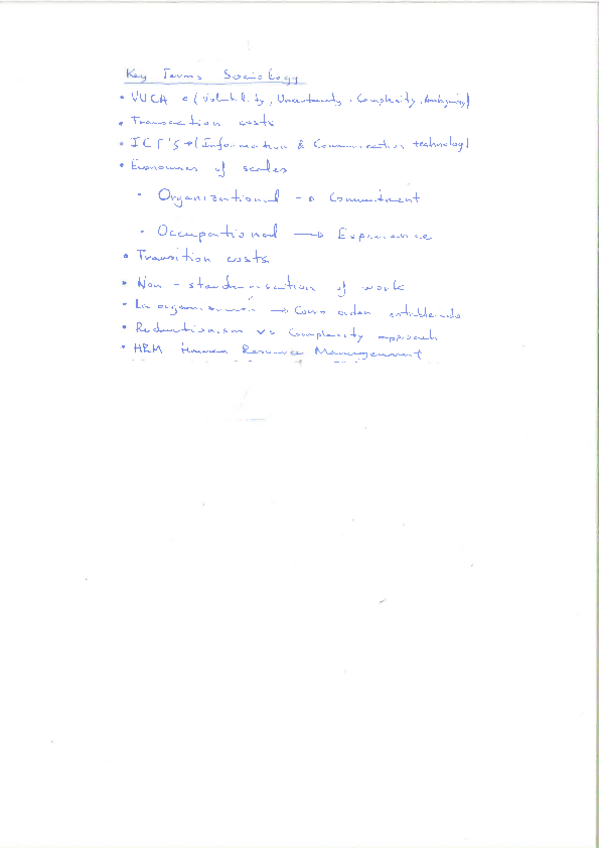 Key Terms Sociology
• VUCA (Volatility, Uncertainty, Complexity, Ambiguity)
• Transaction costs
• ICT'S → (Information & Communication technology)
• Economies of scales
• Organizational → Commitment
• Occupational → Experience
• Transition costs
• Non-standarisation of work
• La organización → Como orden
• Reductionism vs Complexity approach
• HRM Human Resource Management